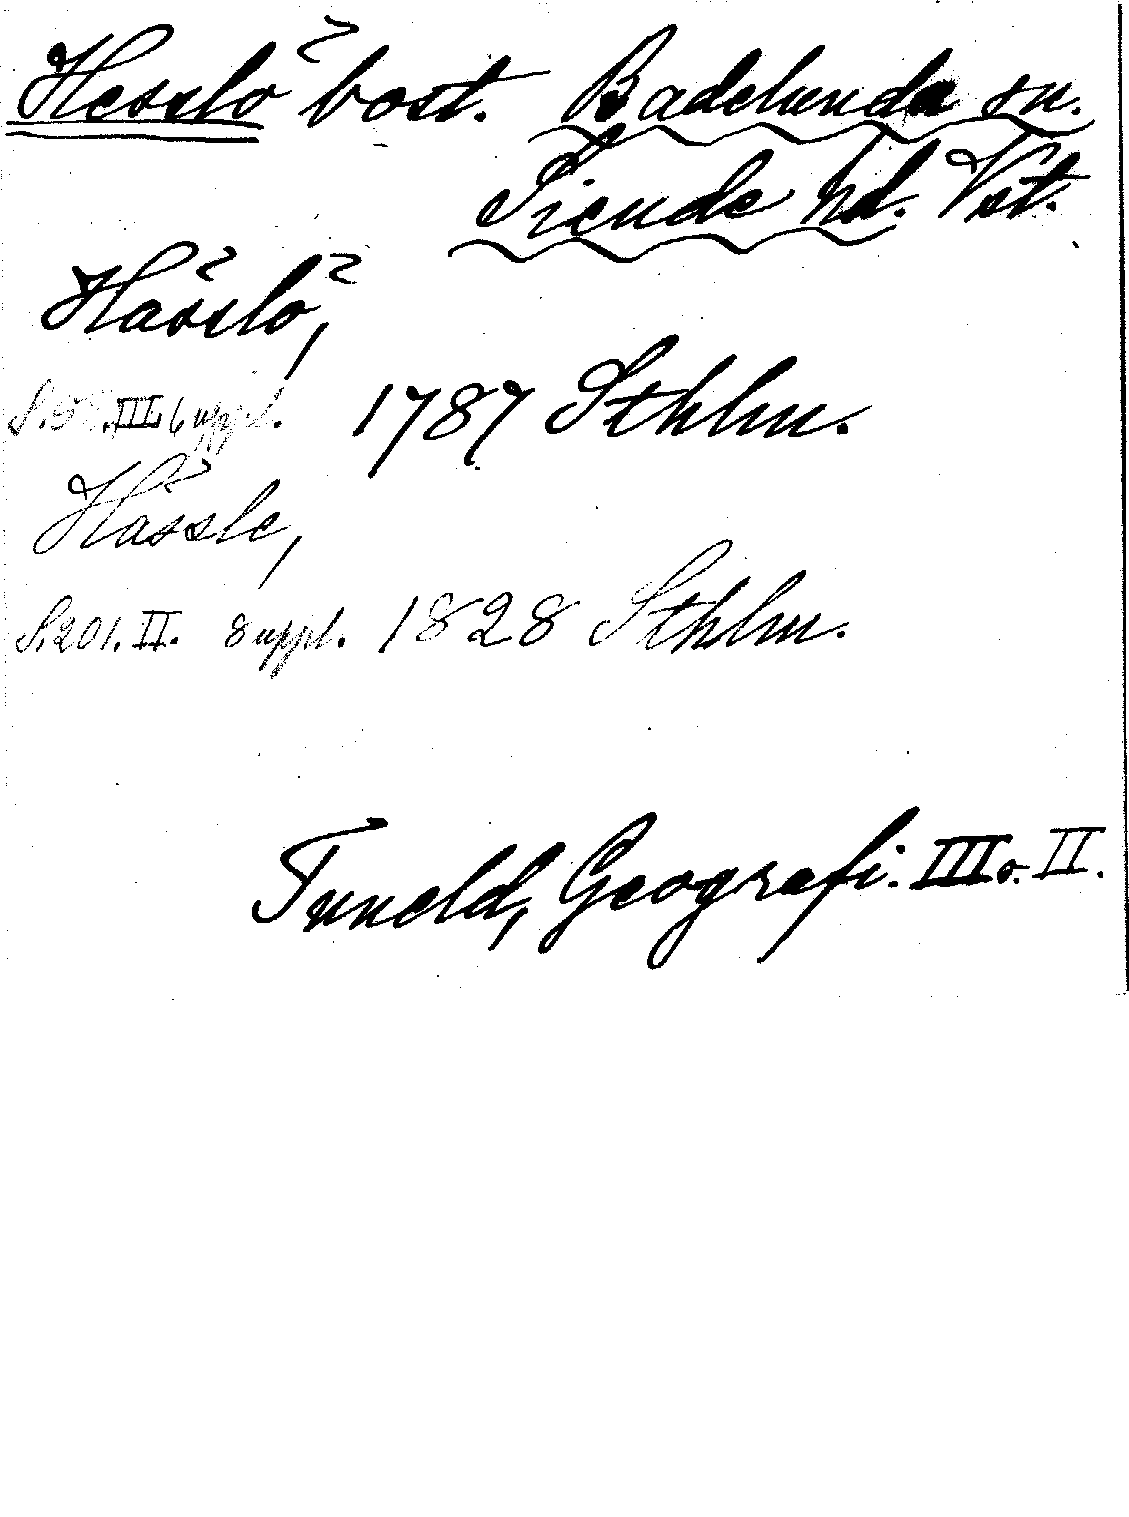 Hesslö bost. Badelunda sn.
Siende hd. Vst.
Hässlö,
III 6 uppl. 1787 Sthlm.
Hässle,
S.201. II. 8 uppl. 1828 Sthlm.
Tuneld, Geografi. III o. II.